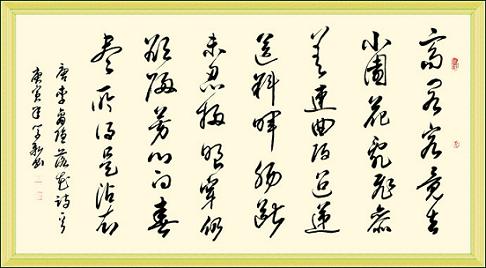 高閣客竟去
小園花亂飛參
差連曲陌迢遞
送斜暉腸斷
未忍掃眼穿仍
欲歸芳心向春
盡所得是沾衣
唐李商隱落花詩
庚寅年